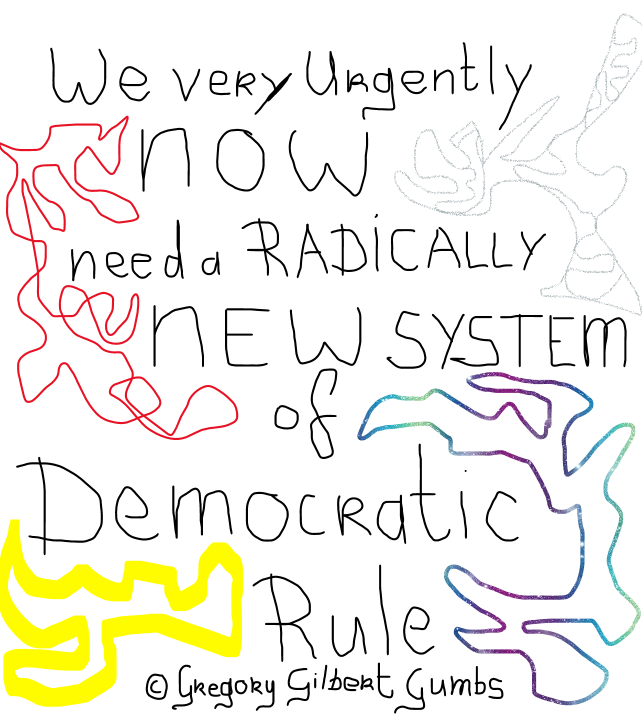 We very Urgently
now
need a RADiCALLY
nEW SYSTEM
of
Democratic
Rule
© Gregory Gilbert Gumbs